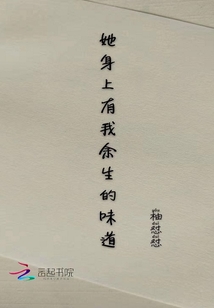 她身上有我余生的味道
柚怼怼
云起书院